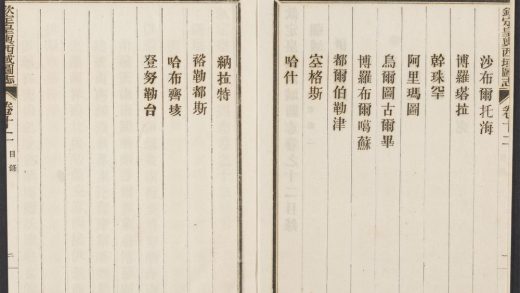 欽定皇輿西域圖志
卷十二
沙布爾托海
博羅塔拉
幹珠罕
阿里瑪圖
烏爾圖古爾畢
博羅布爾噶蘇
都爾伯勒津
空格斯
哈什
納拉特
裕勒都斯
哈布齊垓
登努勒台
欽定皇輿西域圖志
卷十二
目錄
二